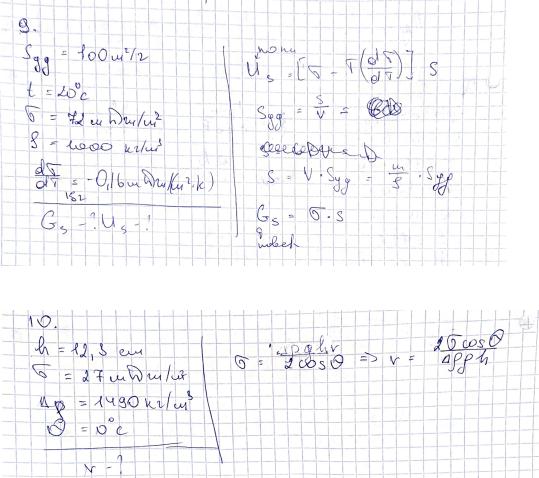 9.
Sуд = 100 м²/г
t = 20°c
σ = 72 мДж/м²
ρ = 1000 кг/м³
dσ/dT = -0,16 мДж/(м²·к)
Gs - ? Us - ?
Us = [σ - T(dσ/dT)] s
Sуд = s/V =
s = V · Sуд = m/ρ · Sуд
Gs = σ · s
10.
h = 12,3 см
σ = 27 мДж/м²
Δρ = 1490 кг/м³
θ = 0°c
r - ?
σ = Δρghr/2cosθ => r = 2σcosθ/Δρgh